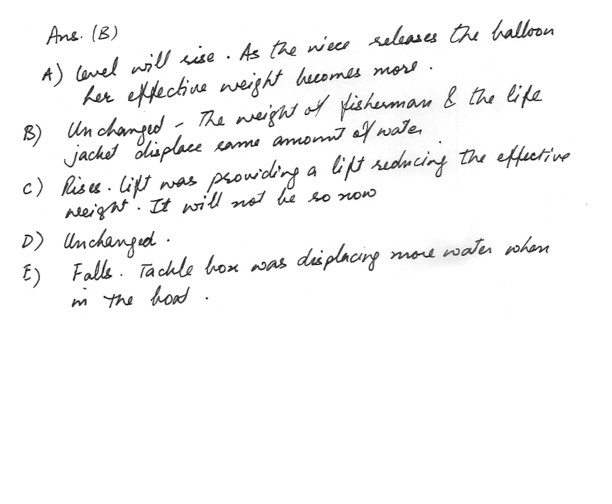 Ans. (B)
A) level will rise. As the niece releases the balloon
her effective weight becomes more.
B) Unchanged - The weight of fisherman & the life
jacket displace same amount of water.
C) Rises. Lift was providing a lift reducing the effective
weight. It will not be so now
D) Unchanged.
E) Falls. Tackle box was displacing more water when
in the boat.